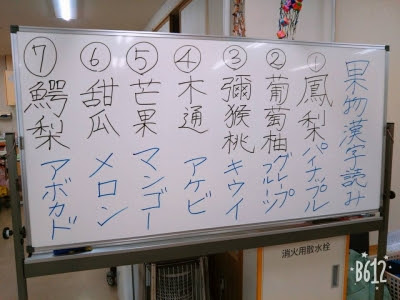 果物漢字読み
①鳳梨 パイナップル
②葡萄柚 グレープフルーツ
③彌猴桃 キウイ
④木通 アケビ
⑤芒果 マンゴー
⑥甜瓜 メロン
⑦鰐梨 アボカド
消火用散水栓
B612